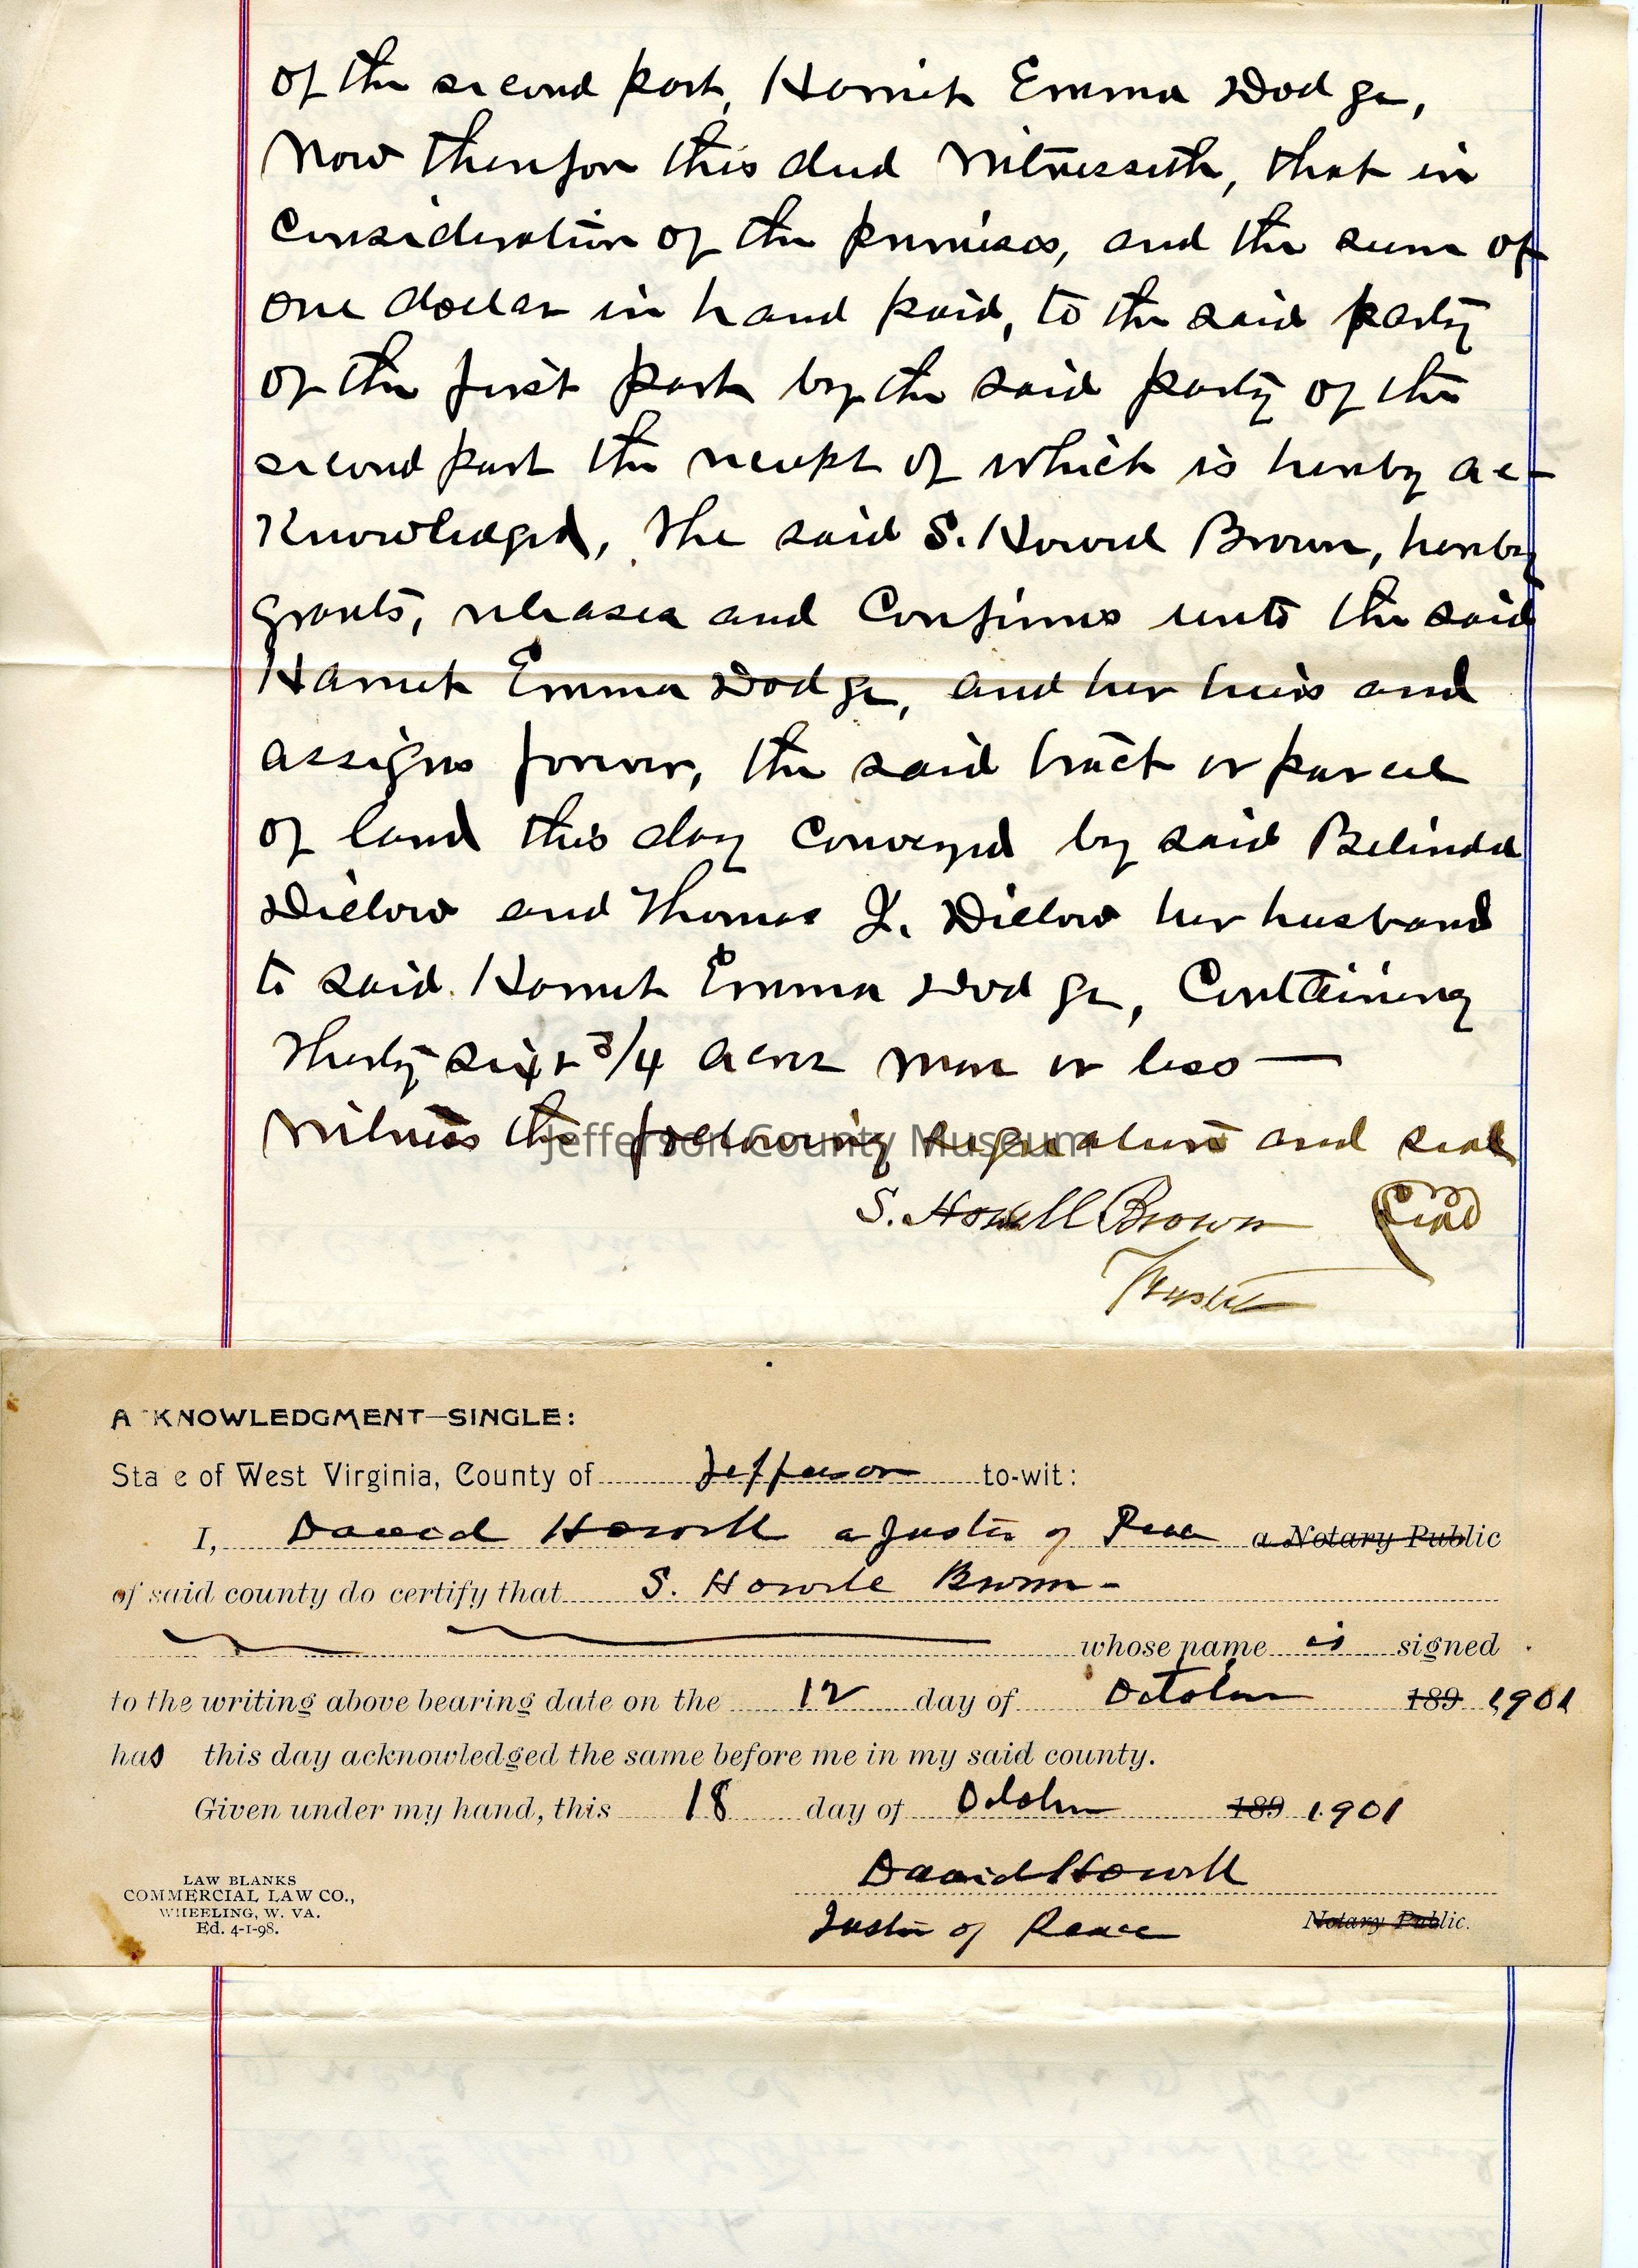 of the second part, Harriet Emma Dodge,
Now therefore this deed Witnesseth, that in
Consideration of the premises, and the sum of
one dollar in hand paid, to the said party
of the first part by the said party of the
second part the receipt of which is hereby ac-
knowledged, the said S. Howell Brown, hereby
grants, releases and Confirms unto the said
Harriet Emma Dodge, and her heirs and
assigns forever, the said tract or parcel
of land this day Conveyed by said Belinda
Dillow and Thomas J. Dillow her husband
to said Harriet Emma Dodge, Containing
Thirty six & 3/4 acres more or less —
Witness the following signature and seal
Jefferson County Museum
S. Howell Brown Seal
Trustee
A KNOWLEDGMENT—SINGLE:
Sta e of West Virginia, County of Jefferson to-wit:
I, David Howell a Justice of Peace a Notary Public
of said county do certify that S. Howell Brown -
whose name is signed
to the writing above bearing date on the 12 day of October 189 1901
has this day acknowledged the same before me in my said county.
Given under my hand, this 18 day of October 189 1901
David Howell
Justice of Peace Notary Public.
LAW BLANKS
COMMERCIAL LAW CO.,
WHEELING, W. VA.
Ed. 4-1-98.